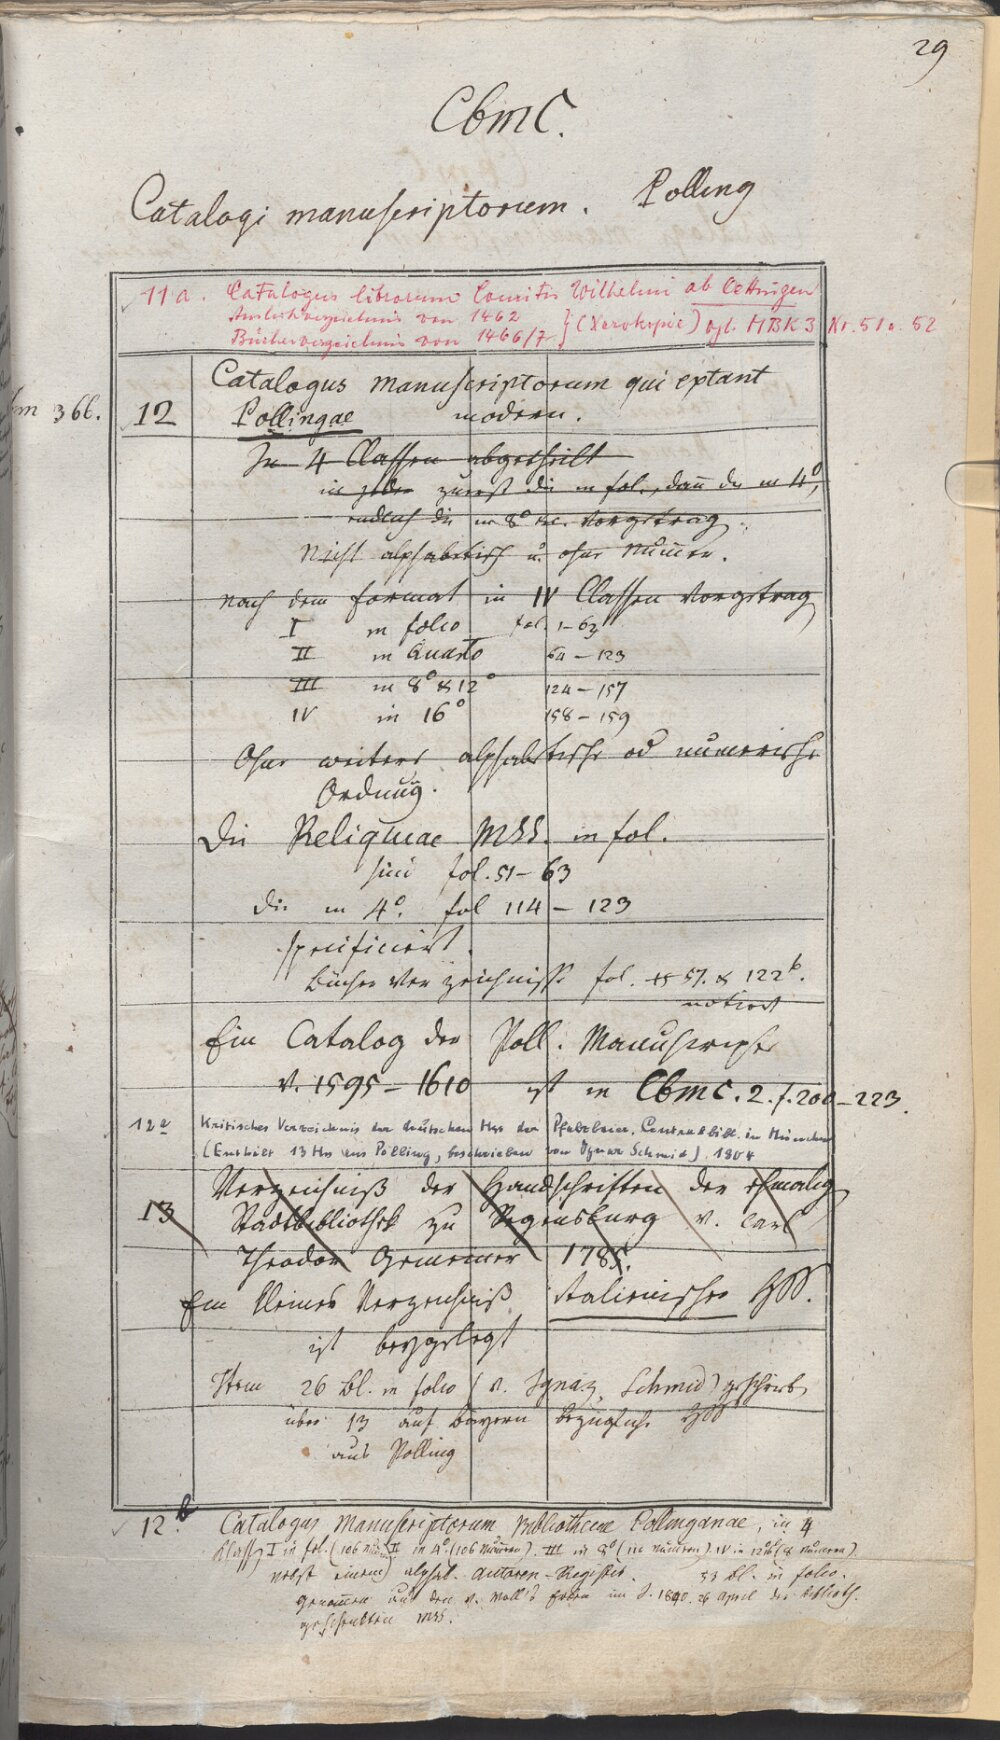 29
Cbm C.
Catalogi manuscriptorum. Polling
11a. Catalogus librorum Comitis Wilhelmi ab Oettingen
Ausleihverzeichnis von 1462
Bücherverzeichnis von 1466/7 } (Xerokopie) vgl. MBK 3 Nr. 51 u. 52
Catalogus manuscriptorum qui extant
366. 12 Pollingae modern.
In 4 Classen abgetheilt
in jeder zuerst die in fol., dann die in 4°,
endlich die in 8° etc. Vorgetrag
Nicht alphabetisch u. ohne Numern.
nach dem Format in IV Classen Vorgetrag
I in folio fol. 1–63
II in Quarto 64–123
III in 8° & 12° 124–157
IV in 16° 158–159
Ohne weitere alphabetische od numerische
Ordnung.
Die Reliquiae MSS. in fol.
sind fol. 51–63
Die in 4°. fol 114–123
specificiert.
Bücher Verzeichnisse fol. 57. & 122b.
notiert
Ein Catalog der Poll. Manuscripte
v. 1595–1610 ist in Cbm C. 2. f. 200–223.
12a Kritisches Verzeichnis der deutschen Hss der Pfalzbaier. Centralbibl. in München
(Enthält 13 Hss aus Polling, beschrieben von Ignaz Schmid). 1804
Verzeichniß der Handschriften der ehmalig
13 Stadtbibliothek zu Regensburg v. Carl
Theodor Gemeiner 1785.
Ein kleines Verzeichniß Italienischer HSS.
ist beygelegt
Item 26 Bl. in folio (v. Ignaz Schmid) geschrieb
über 13 auf Bayern bezügliche HSS
aus Polling
12.b Catalogus Manuscriptorum Bibliothecae Pollinganae, in 4
Classen I in fol. (106 Num) II in 4° (106 Numern). III in 8° (111 Numern). IV in 12° (8 Numern).
nebst einem alphab. Autoren-Register. 53 Bl. in folio.
Genommen aus den v. Moll's im J. 1840. 26 April der Biblioth.
geschenkten MSS.